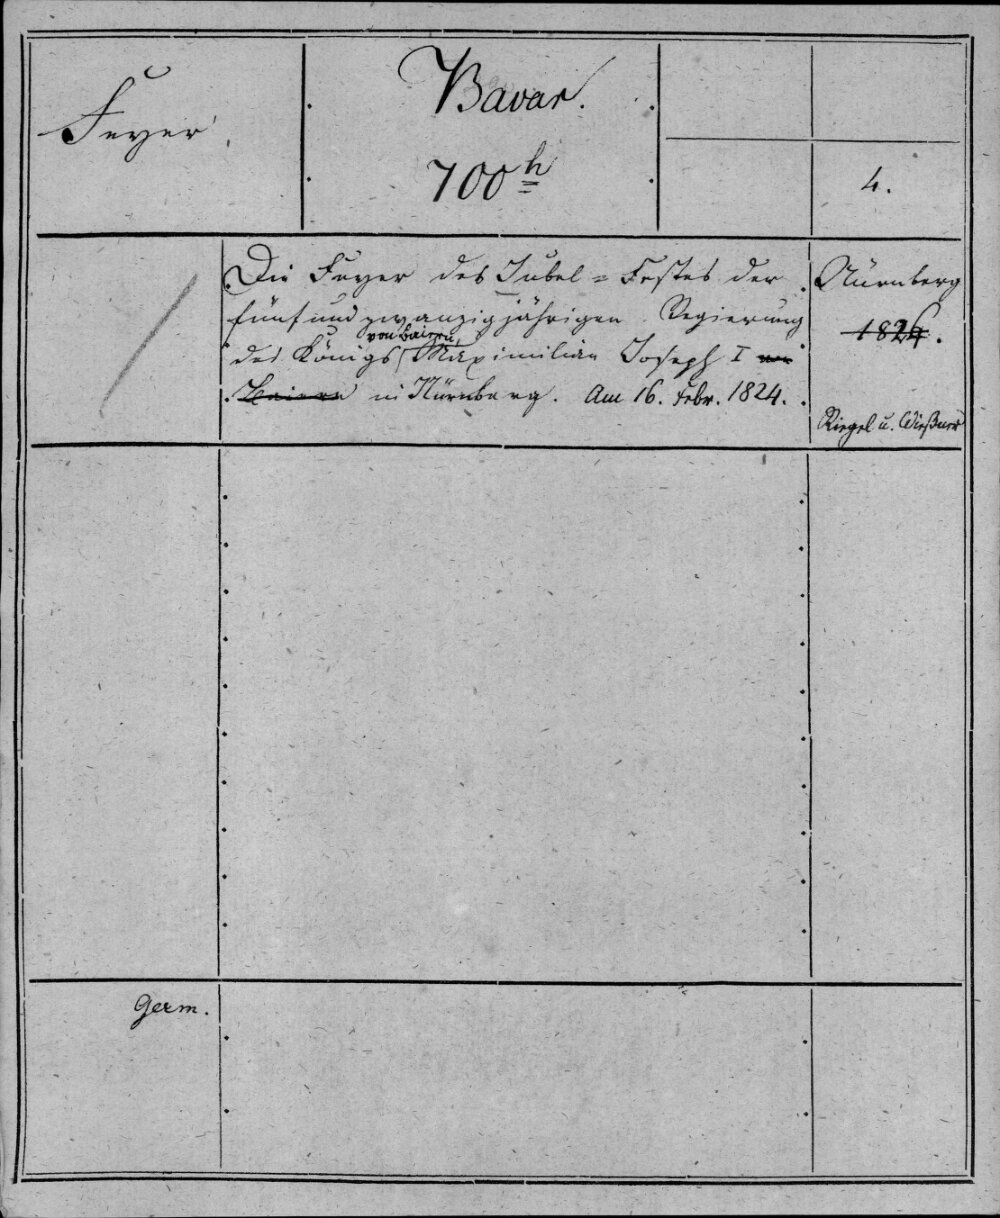 Feyer.
Bavar.
700 h
4.
Die Feyer des Jubel = Festes der
fünfundzwanzigjährigen Regierung
von Baiern
des Königs Maximilian Joseph I von
Baiern in Nürnberg. Am 16. Febr. 1824.
Nürnberg
1824.
Riegel u. Wießner
Germ.